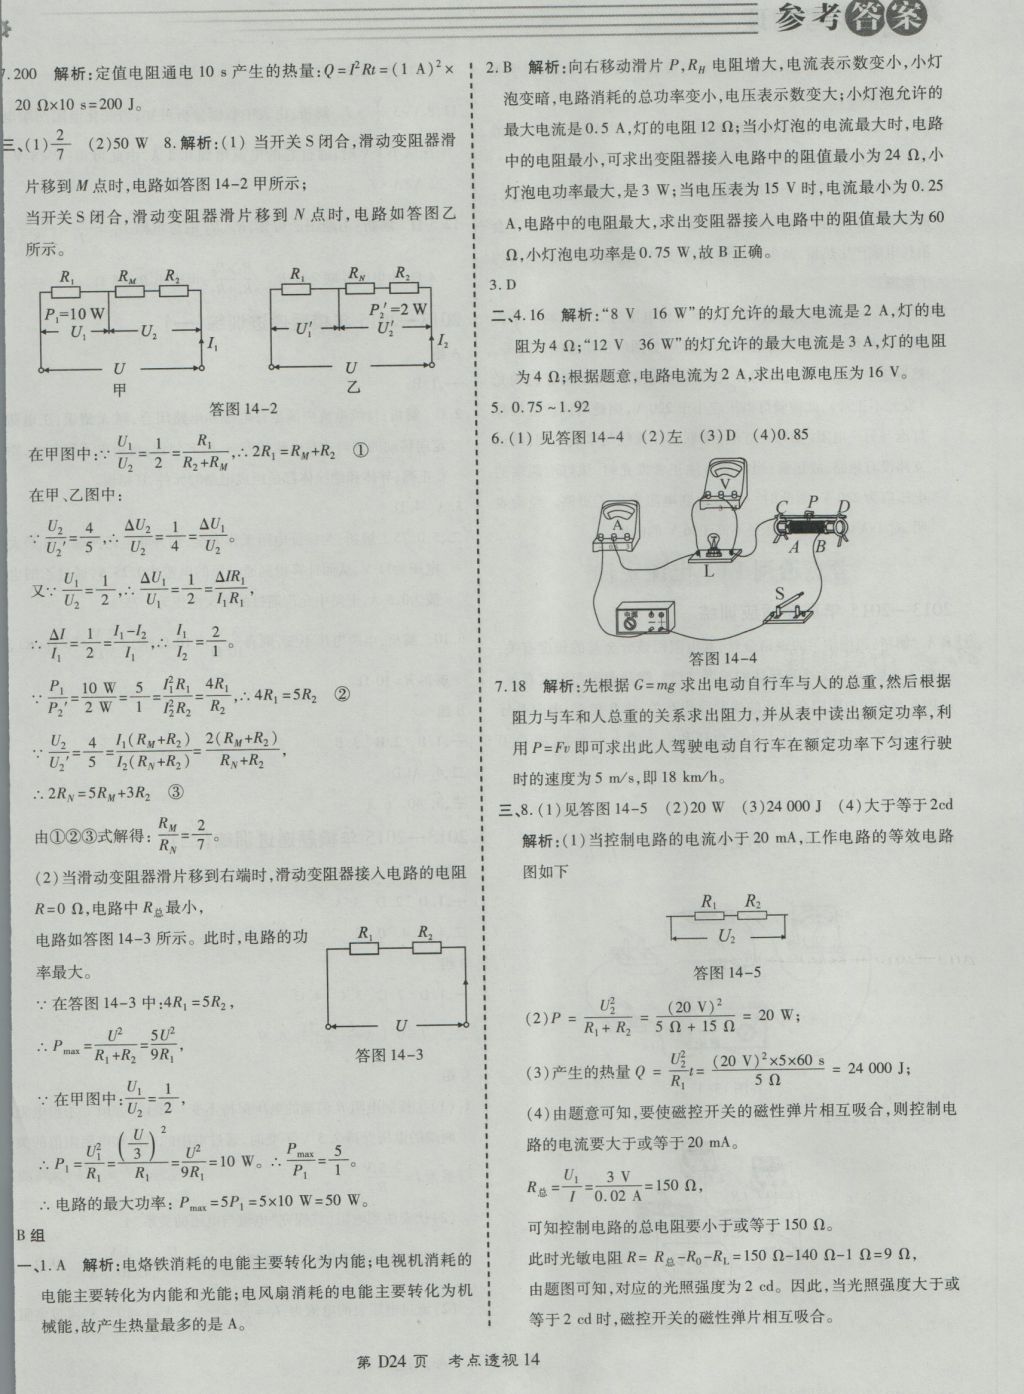 参考答案
7.200 解析:定值电阻通电 10 s 产生的热量:Q=I²Rt=(1 A)²×
20 Ω×10 s=200 J。
三、(1)2/7 (2)50 W 8.解析:(1) 当开关 S 闭合,滑动变阻器滑
片移到 M 点时,电路如答图 14-2 甲所示;
当开关 S 闭合,滑动变阻器滑片移到 N 点时,电路如答图乙
所示。
R₁ R_M R₂
P₁=10 W
U₁ U₂ I₁
U
甲
R₁ R_N R₂
P₂′=2 W
U₁′ U₂′ I₂
U
乙
答图 14-2
在甲图中:∵ U₁/U₂=1/2=R₁/(R₂+R_M),∴2R₁=R_M+R₂ ①
在甲、乙图中:
∵ U₂/U₂′=4/5,∴ΔU₂/U₂=1/4=ΔU₁/U₂。
又∵ U₁/U₂=1/2,∴ΔU₁/U₁=1/2=ΔIR₁/I₁R₁,
∴ΔI/I₁=1/2=(I₁-I₂)/I₁,∴I₁/I₂=2/1。
∵ P₁/P₂′=10 W/2 W=5/1=I₁²R₁/I₂²R₂=4R₁/R₂,∴4R₁=5R₂ ②
∵ U₂/U₂′=4/5=I₁(R_M+R₂)/I₂(R_N+R₂)=2(R_M+R₂)/(R_N+R₂),
∴2R_N=5R_M+3R₂ ③
由①②③式解得:R_M/R_N=2/7。
(2)当滑动变阻器滑片移到右端时,滑动变阻器接入电路的电阻
R=0 Ω,电路中 R总最小,
电路如答图 14-3 所示。此时,电路的功
率最大。
∵在答图 14-3 中:4R₁=5R₂,
∴P_max=U²/(R₁+R₂)=5U²/9R₁,
R₁ R₂
U
答图 14-3
∵在甲图中:U₁/U₂=1/2,
∴P₁=U₁²/R₁=(U/3)²/R₁=U²/9R₁=10 W。∴P_max/P₁=5/1。
∴电路的最大功率:P_max=5P₁=5×10 W=50 W。
B 组
一、1.A 解析:电烙铁消耗的电能主要转化为内能;电视机消耗的
电能主要转化为内能和光能;电风扇消耗的电能主要转化为机
械能,故产生热量最多的是 A。
2.B 解析:向右移动滑片 P,R_H 电阻增大,电流表示数变小,小灯
泡变暗,电路消耗的总功率变小,电压表示数变大;小灯泡允许的
最大电流是0.5 A,灯的电阻 12 Ω;当小灯泡的电流最大时,电路
中的电阻最小,可求出变阻器接入电路中的阻值最小为 24 Ω,小
灯泡电功率最大,是 3 W;当电压表为 15 V 时,电流最小为 0.25
A,电路中的电阻最大,求出变阻器接入电路中的阻值最大为 60
Ω,小灯泡电功率是 0.75 W,故 B 正确。
3.D
二、4.16 解析:“8 V 16 W”的灯允许的最大电流是 2 A,灯的电
阻为 4 Ω;“12 V 36 W”的灯允许的最大电流是 3 A,灯的电阻
为 4 Ω;根据题意,电路电流为 2 A,求出电源电压为 16 V。
5. 0.75~1.92
6.(1) 见答图 14-4 (2)左 (3)D (4)0.85
V
A
C P D
A B
L
S
答图 14-4
7.18 解析:先根据 G=mg 求出电动自行车与人的总重,然后根据
阻力与车和人总重的关系求出阻力,并从表中读出额定功率,利
用 P=Fv 即可求出此人驾驶电动自行车在额定功率下匀速行驶
时的速度为 5 m/s,即 18 km/h。
三、8.(1)见答图 14-5 (2)20 W (3)24 000 J (4)大于等于2cd
解析:(1)当控制电路的电流小于 20 mA,工作电路的等效电路
图如下
R₁ R₂
U₂
答图 14-5
(2)P = U₂²/(R₁+R₂) = (20 V)²/(5 Ω+15 Ω) = 20 W;
(3)产生的热量 Q = U₂²/R₁ t= (20 V)²×5×60 s/5 Ω = 24 000 J;
(4)由题意可知,要使磁控开关的磁性弹片相互吸合,则控制电
路的电流要大于或等于 20 mA。
R总=U₁/I=3 V/0.02 A=150 Ω,
可知控制电路的总电阻要小于或等于 150 Ω。
此时光敏电阻 R= R总-R₀-R_L=150 Ω-140 Ω-1 Ω=9 Ω,
由题图可知,对应的光照强度为 2 cd。因此,当光照强度大于或
等于 2 cd 时,磁控开关的磁性弹片相互吸合。
第 D24 页 考点透视 14